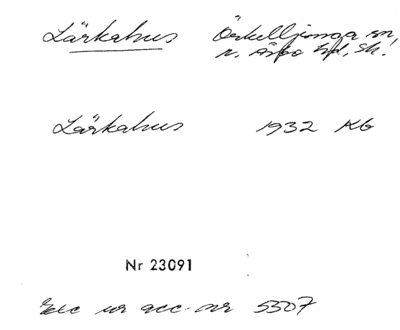 Lärkahus Örkelljunga sn,
n. Åsbo hd, Sk.
Lärkahus 1932 KG
Nr 23091
Exc ur acc. nr 5307